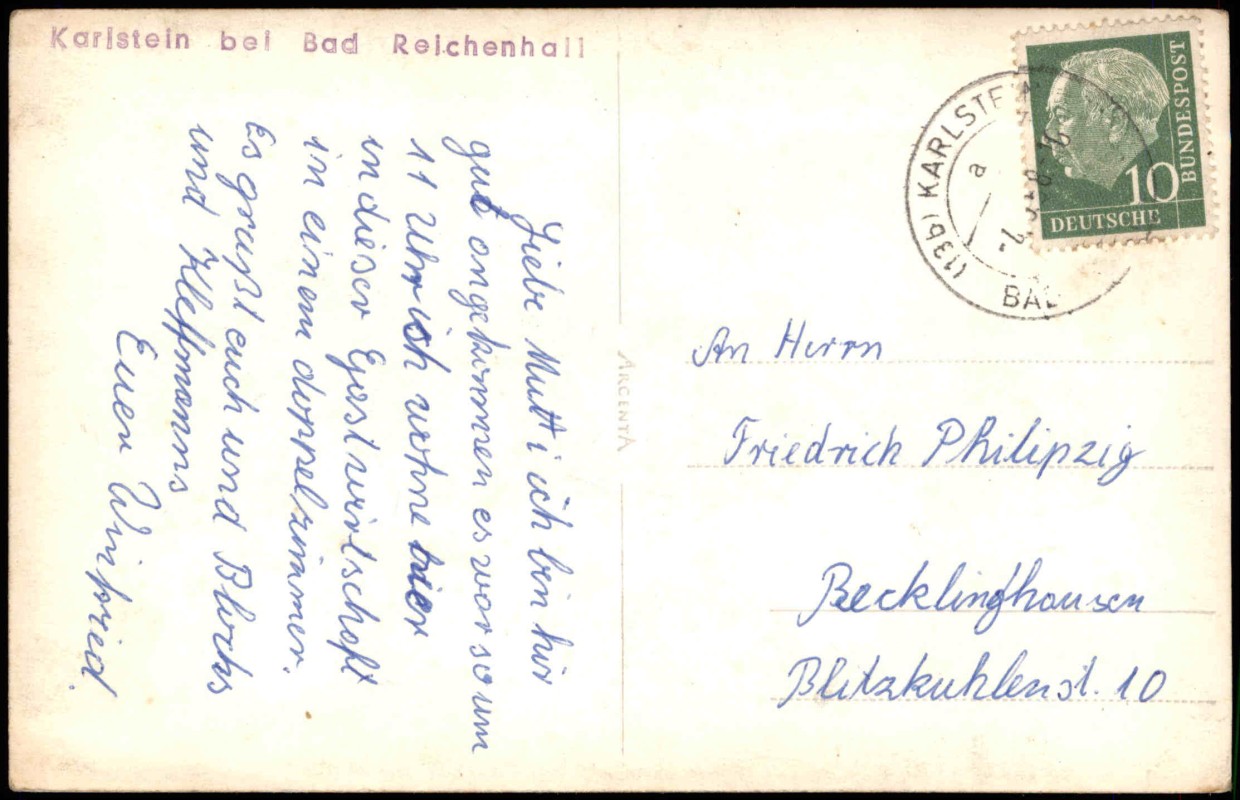 Karlstein bei Bad Reichenhall
Liebe Mutti ich bin hir
gut angekommen es war so um
11 Uhr ich wohne hier
in dieser Gastwirtschaft
in einem doppelzimmer.
Es grüßt euch und Blocks
und Kleffmanns
Euer Winfried.
ARGENTA
BUNDESPOST
10
DEUTSCHE
(13b) KARLSTEIN
a
BAD
An Herrn
Friedrich Philipzig
Recklinghausen
Blitzkuhlenst. 10